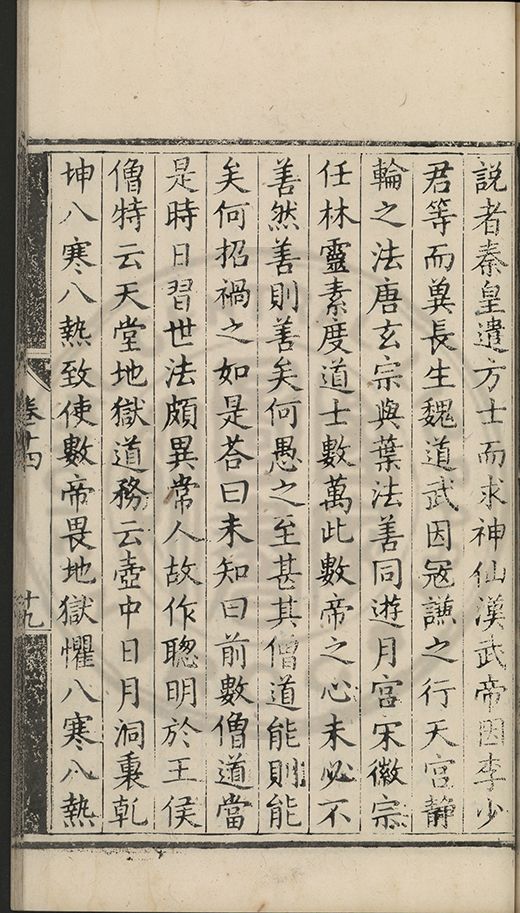 說者秦皇遣方士而求神仙漢武帝因李少
君等而兾長生魏道武因冦謙之行天宮静
輪之法唐玄宗與葉法善同遊月宮宋徽宗
任林靈素度道士數萬此數帝之心未必不
善然善則善矣何愚之至甚其僧道能則能
矣何招禍之如是荅曰未知曰前數僧道當
是時日習世法頗異常人故作聦明於王侯
僧特云天堂地獄道務云壺中日月洞裏乾
坤八寒八熱致使數帝畏地獄懼八寒八熱
卷十四
十九